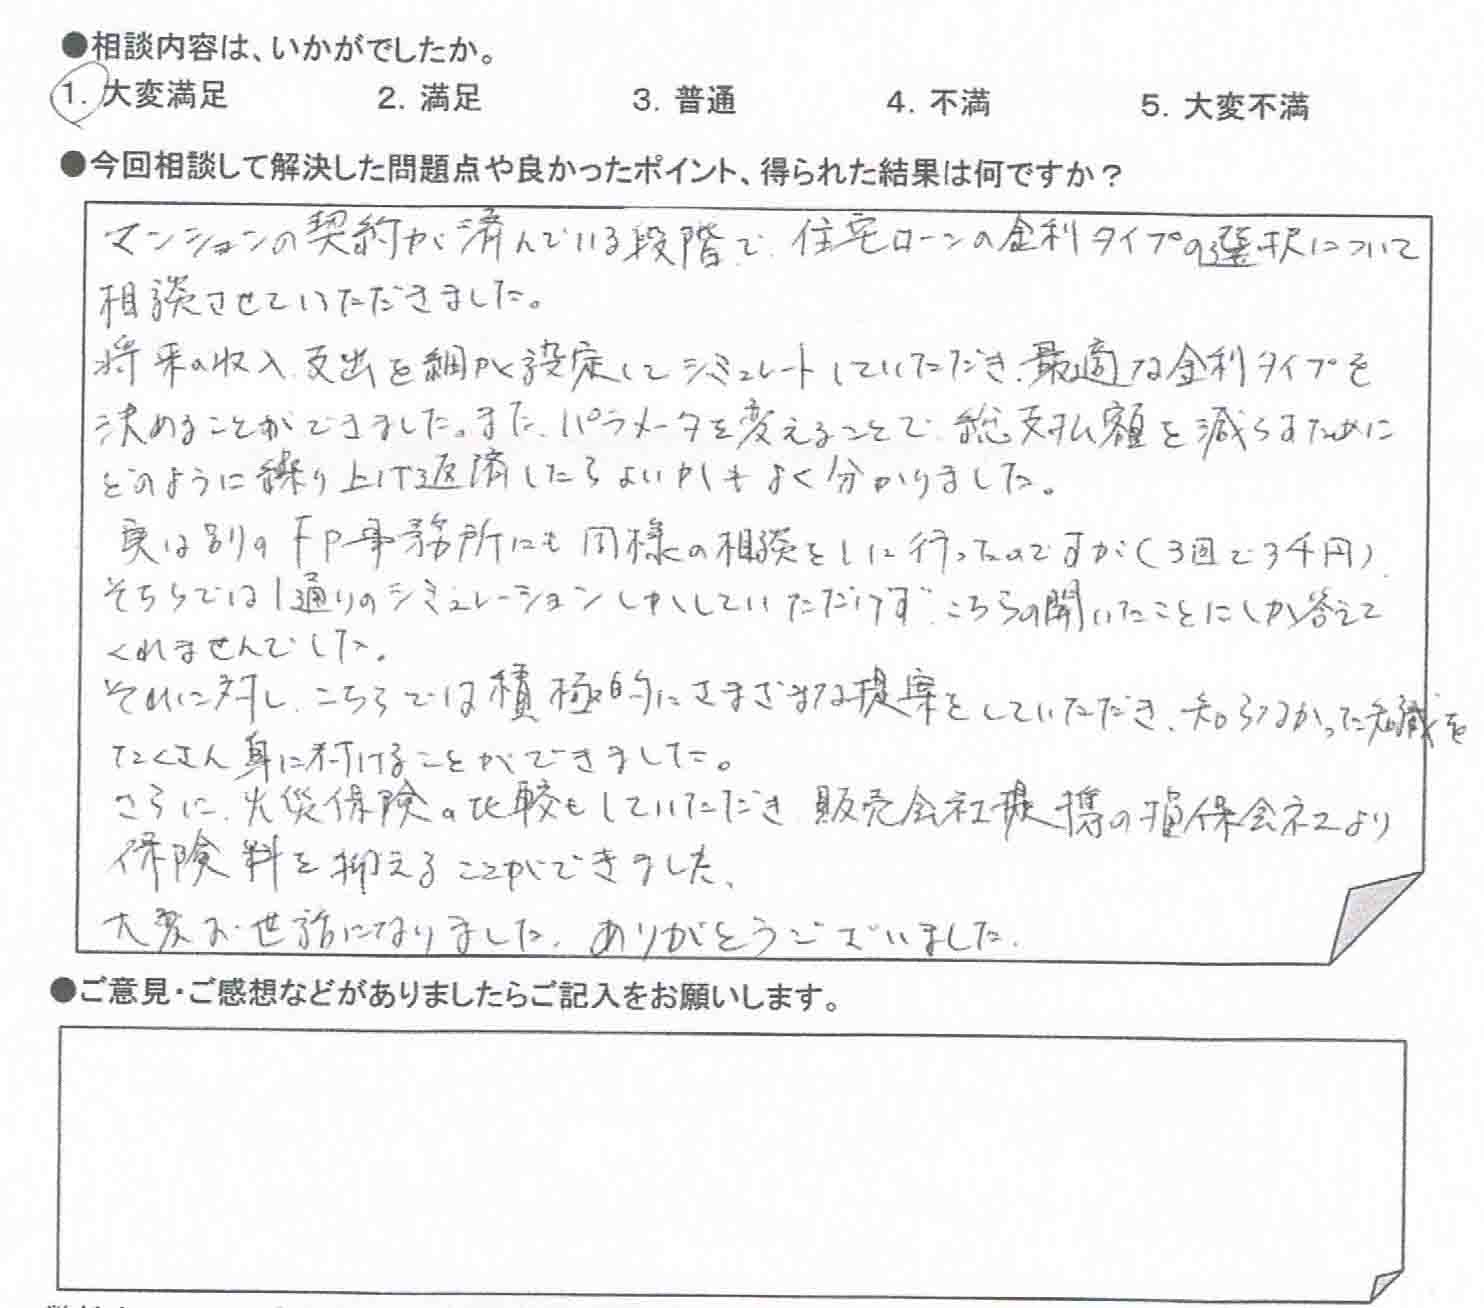 ●相談内容は、いかがでしたか。
1. 大変満足 2. 満足 3. 普通 4. 不満 5. 大変不満
●今回相談して解決した問題点や良かったポイント、得られた結果は何ですか？
マンションの契約が済んでいる段階で、住宅ローンの金利タイプの選択について
相談させていただきました。
将来の収入、支出を細かく設定してシミュレートしていただき、最適な金利タイプを
決めることができました。また、パラメータを変えることで、総支払額を減らすために
どのように繰り上げ返済したらよいかもよく分かりました。
実は別のFP事務所にも同様の相談をしに行ったのですが(3回で3千円)、
そちらでは1通りのシミュレーションしかしていただけず、こちらの聞いたことにしか答えて
くれませんでした。
それに対し、こちらでは積極的にさまざまな提案をしていただき、知らなかった知識を
たくさん身に付けることができました。
さらに、火災保険の比較もしていただき、販売会社提携の損保会社より
保険料を抑えることができました、
大変お世話になりました、ありがとうございました、
●ご意見・ご感想などがありましたらご記入をお願いします。